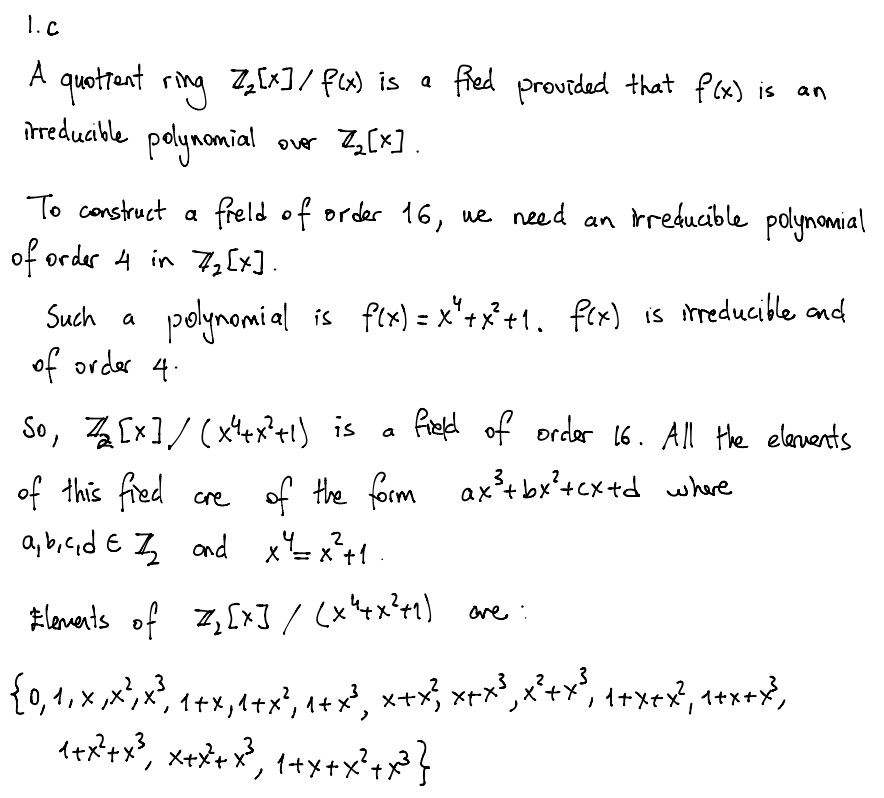 1.c
A quotient ring ℤ₂[x]/f(x) is a fied provided that f(x) is an
irreducible polynomial over ℤ₂[x].
To construct a field of order 16, we need an irreducible polynomial
of order 4 in ℤ₂[x].
Such a polynomial is f(x) = x⁴+x²+1. f(x) is irreducible and
of order 4.
So, ℤ₂[x]/(x⁴+x²+1) is a field of order 16. All the elements
of this fied are of the form ax³+bx²+cx+d where
a,b,c,d ∈ ℤ₂ and x⁴=x²+1.
Elements of ℤ₂[x] / (x⁴+x²+1) are:
{0, 1, x, x², x³, 1+x, 1+x², 1+x³, x+x², x+x³, x²+x³, 1+x+x², 1+x+x³,
1+x²+x³, x+x²+x³, 1+x+x²+x³}